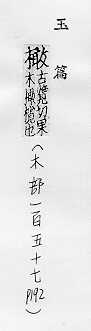 玉篇
橄古覽切果木橄欖也(木部一百五十七 p192)